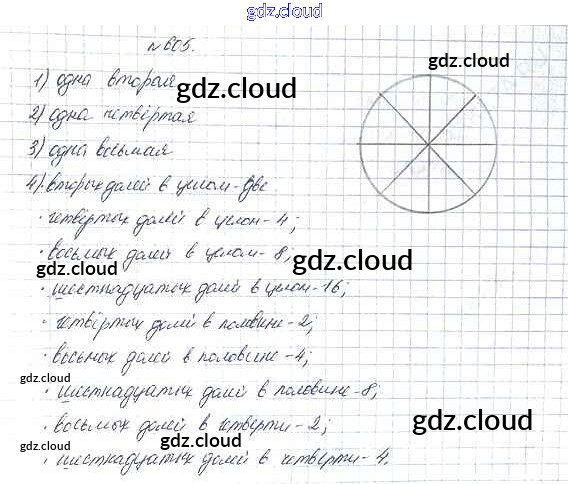 gdz.cloud
№ 605.
1) одна вторая
gdz.cloud
gdz.cloud
2) одна четвёртая
3) одна восьмая
4) · вторых долей в целом - две.
· четвёртых долей в целом - 4;
· восьмых долей в целом - 8;
gdz.cloud
gdz.cloud
· шестнадцатых долей в целом - 16;
· четвёртых долей в половине - 2;
· восьмых долей в половине - 4;
gdz.cloud
· шестнадцатых долей в половине - 8;
· восьмых долей в четверти - 2;
gdz.cloud
gdz.cloud
· шестнадцатых долей в четверти - 4.
gdz.cloud